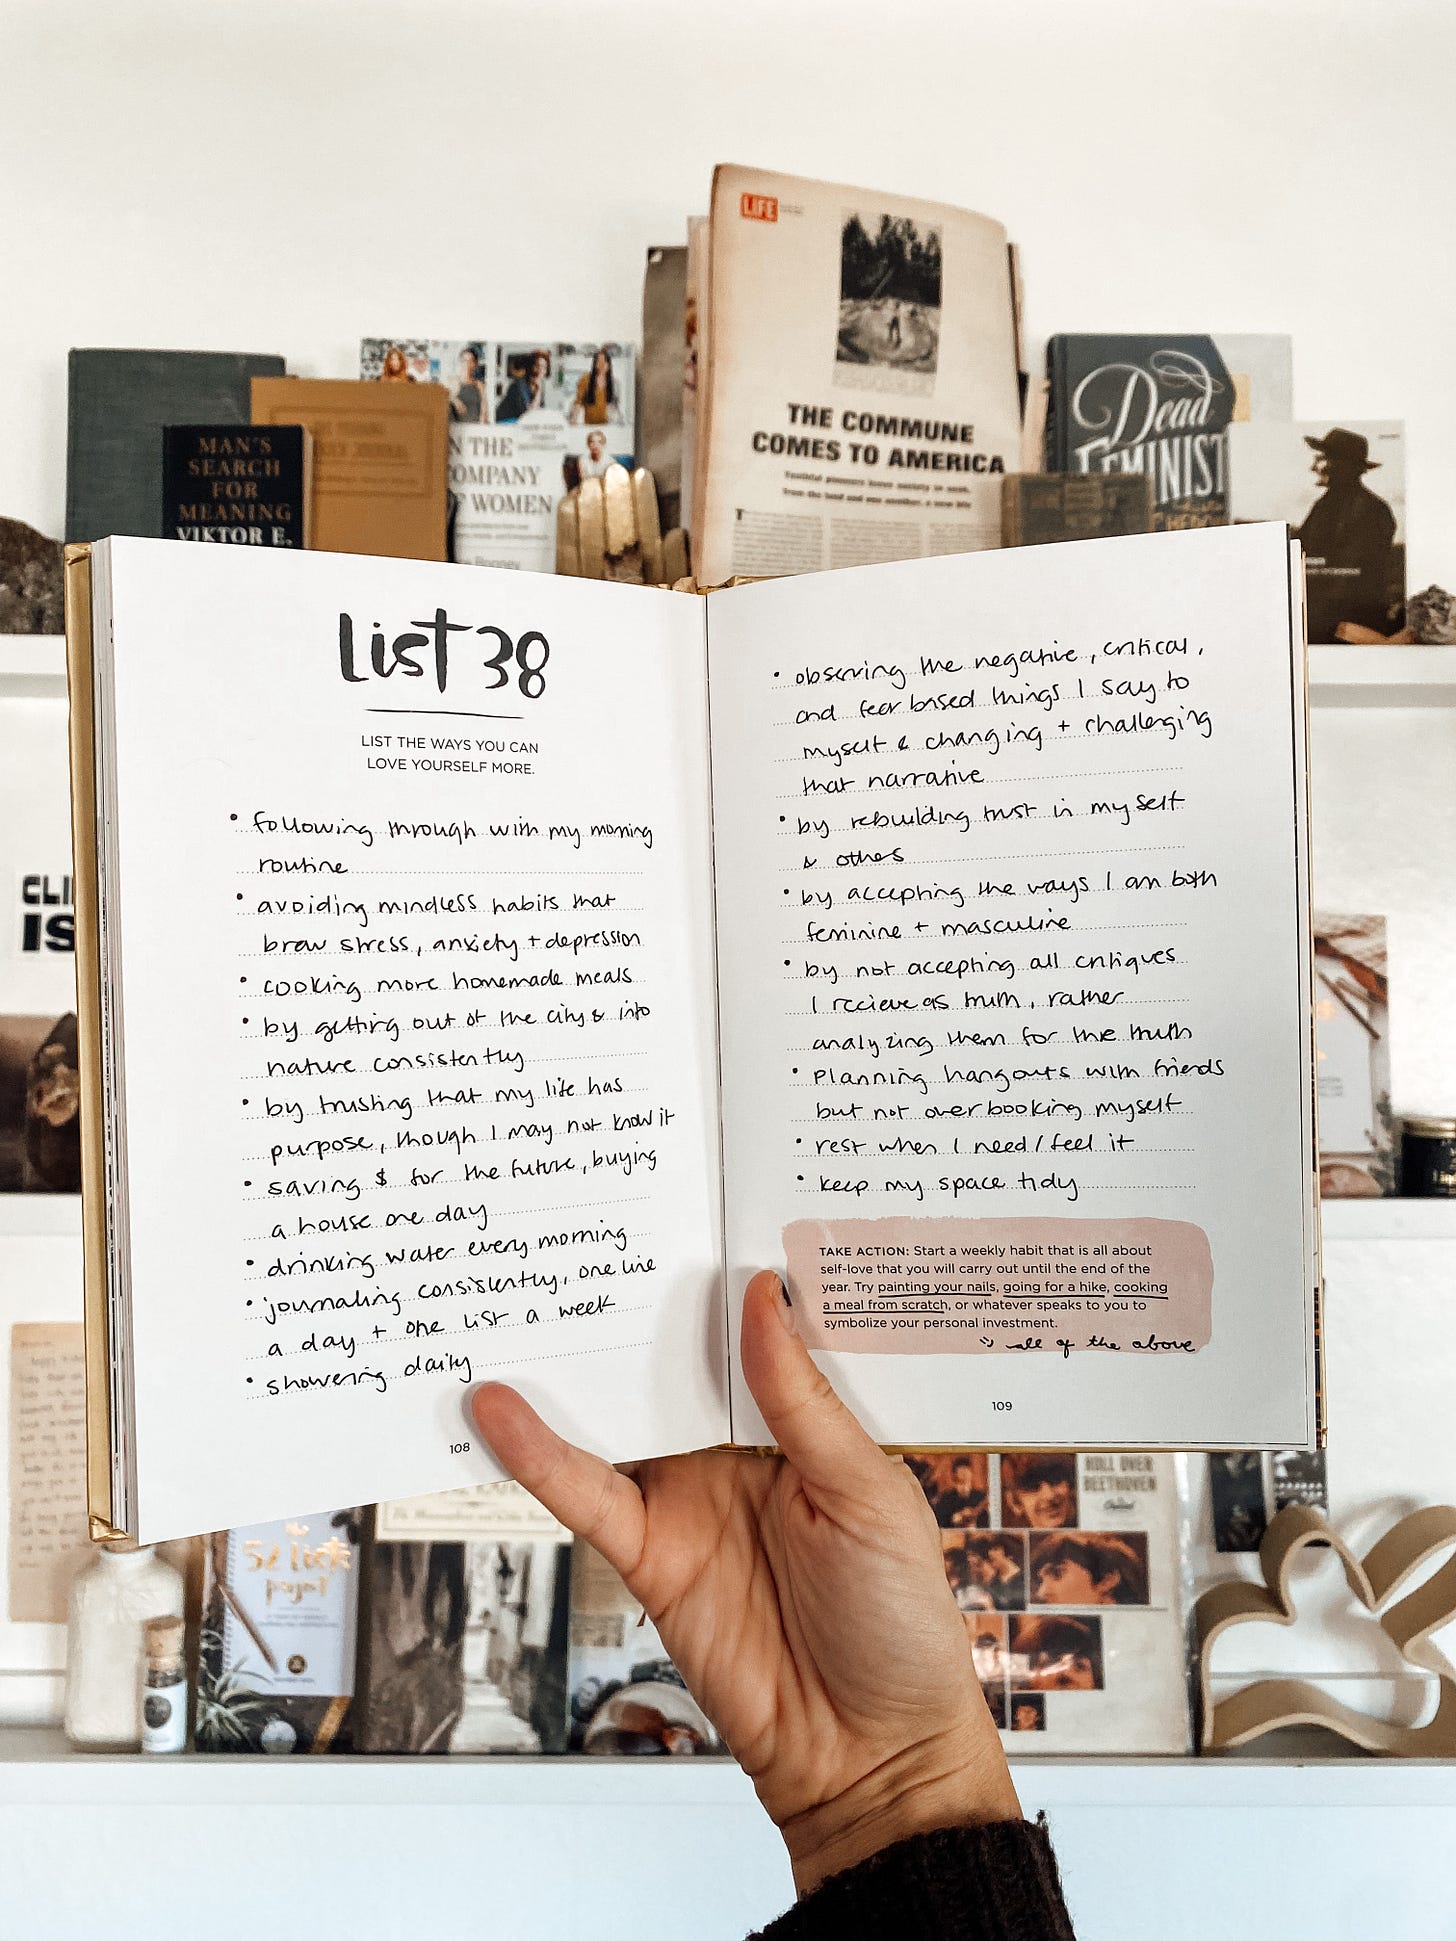 LIFE
THE COMMUNE
COMES TO AMERICA
MAN'S
SEARCH
FOR
MEANING
VIKTOR E.
N THE
OMPANY
F WOMEN
Dead
FEMINIST
List 38
LIST THE WAYS YOU CAN
LOVE YOURSELF MORE.
• following through with my morning
routine
• avoiding mindless habits that
brew stress, anxiety + depression
• cooking more homemade meals
• by getting out of the city & into
nature consistently
• by trusting that my life has
purpose, though I may not know it
• saving $ for the future, buying
a house one day
• drinking water every morning
• journaling consistently, one line
a day + one list a week
• showering daily
108
• observing the negative, critical,
and fear based things I say to
myself & changing + challenging
that narrative
• by rebuilding trust in myself
& others
• by accepting the ways I am both
feminine + masculine
• by not accepting all critiques
I recieve as truth, rather
analyzing them for the truth
• planning hangouts with friends
but not overbooking myself
• rest when I need/feel it
• keep my space tidy
TAKE ACTION: Start a weekly habit that is all about
self-love that you will carry out until the end of the
year. Try painting your nails, going for a hike, cooking
a meal from scratch, or whatever speaks to you to
symbolize your personal investment.
all of the above
109
CLI
IS
52 Lists
project
ROLL OVER
BEETHOVEN